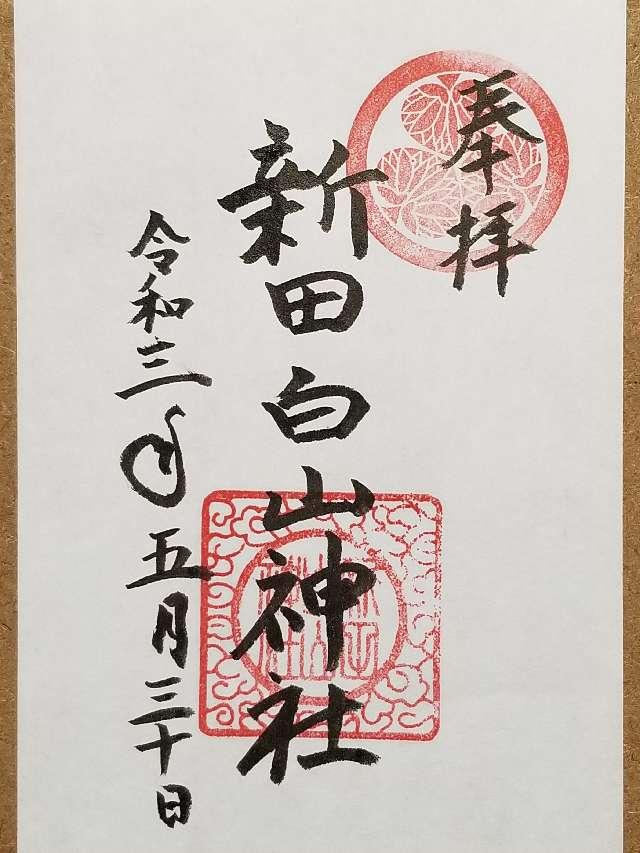 奉拝
新田白山神社
令和三年五月三十日